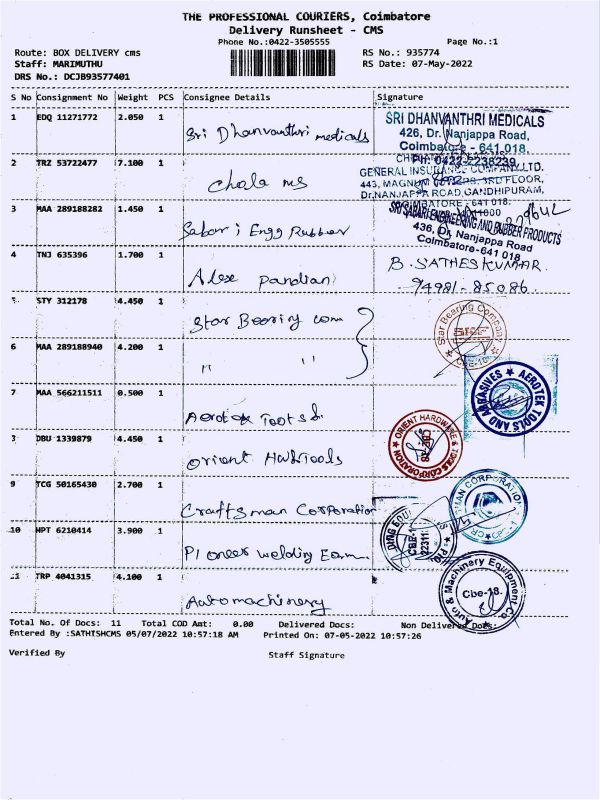 THE PROFESSIONAL COURIERS, Coimbatore
Delivery Runsheet - CMS
Phone No.:0422-3505555 Page No.:1
Route: BOX DELIVERY cms RS No.: 935774
Staff: MARIMUTHU RS Date: 07-May-2022
DRS No.: DCJB93577401
S No Consignment No Weight PCS Consignee Details Signature
1 EDQ 11271772 2.050 1 Sri Dhanvanthri medicals
SRI DHANVANTHRI MEDICALS
426, Dr. Nanjappa Road,
Coimbatore - 641 018.
Ph: 0422-2238239
2 TRZ 53722477 7.100 1 Chola ms
GENERAL INSURANCE COMPANY LTD.
443, MAGNUM TOWERS, 3RD FLOOR,
Dr.NANJAPPA ROAD, GANDHIPURAM,
COIMBATORE - 641 018.
3 MAA 289188282 1.450 1 Sabari Engg Rubber
SRI SABARI ENGINEERING AND RUBBER PRODUCTS
436, Dr. Nanjappa Road
Coimbatore-641 018
4 TNJ 635396 1.700 1 Alex pandian
B. SATHESKUMAR.
94981-85086.
5 STY 312178 4.450 1 Star Beering com
Star Bearing Company
CBE-18
6 MAA 289188940 4.200 1 " "
7 MAA 566211511 0.500 1 Aerotex Toots &
AEROTEK TOOLS AND ABRASIVES
3 DBU 1339879 4.450 1 Orient HarkTools
ORIENT HARDWARE & TOOLS CORPORATION
CBE-18
9 TCG 50165430 2.700 1 Craftsman Corporation
MAN CORPORATION
10 HPT 6210414 3.900 1 Pioneer welding Eqm
11 TRP 4041315 4.100 1 Automachinery
Auto & Machinery Equipment Co
Cbe-18.
Total No. Of Docs: 11 Total COD Amt: 0.00 Delivered Docs: Non Delivered Docs:
Entered By :SATHISHCMS 05/07/2022 10:57:18 AM Printed On: 07-05-2022 10:57:26
Verified By Staff Signature